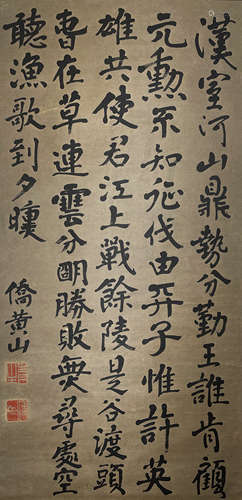 漢室河山鼎勢分勤王誰肯顧
元勳不知征伐由天子惟許英
雄共使君江上戰餘陵是谷渡頭
春在草連雲分明勝敗無尋處空
聽漁歌到夕曛
僑黃山